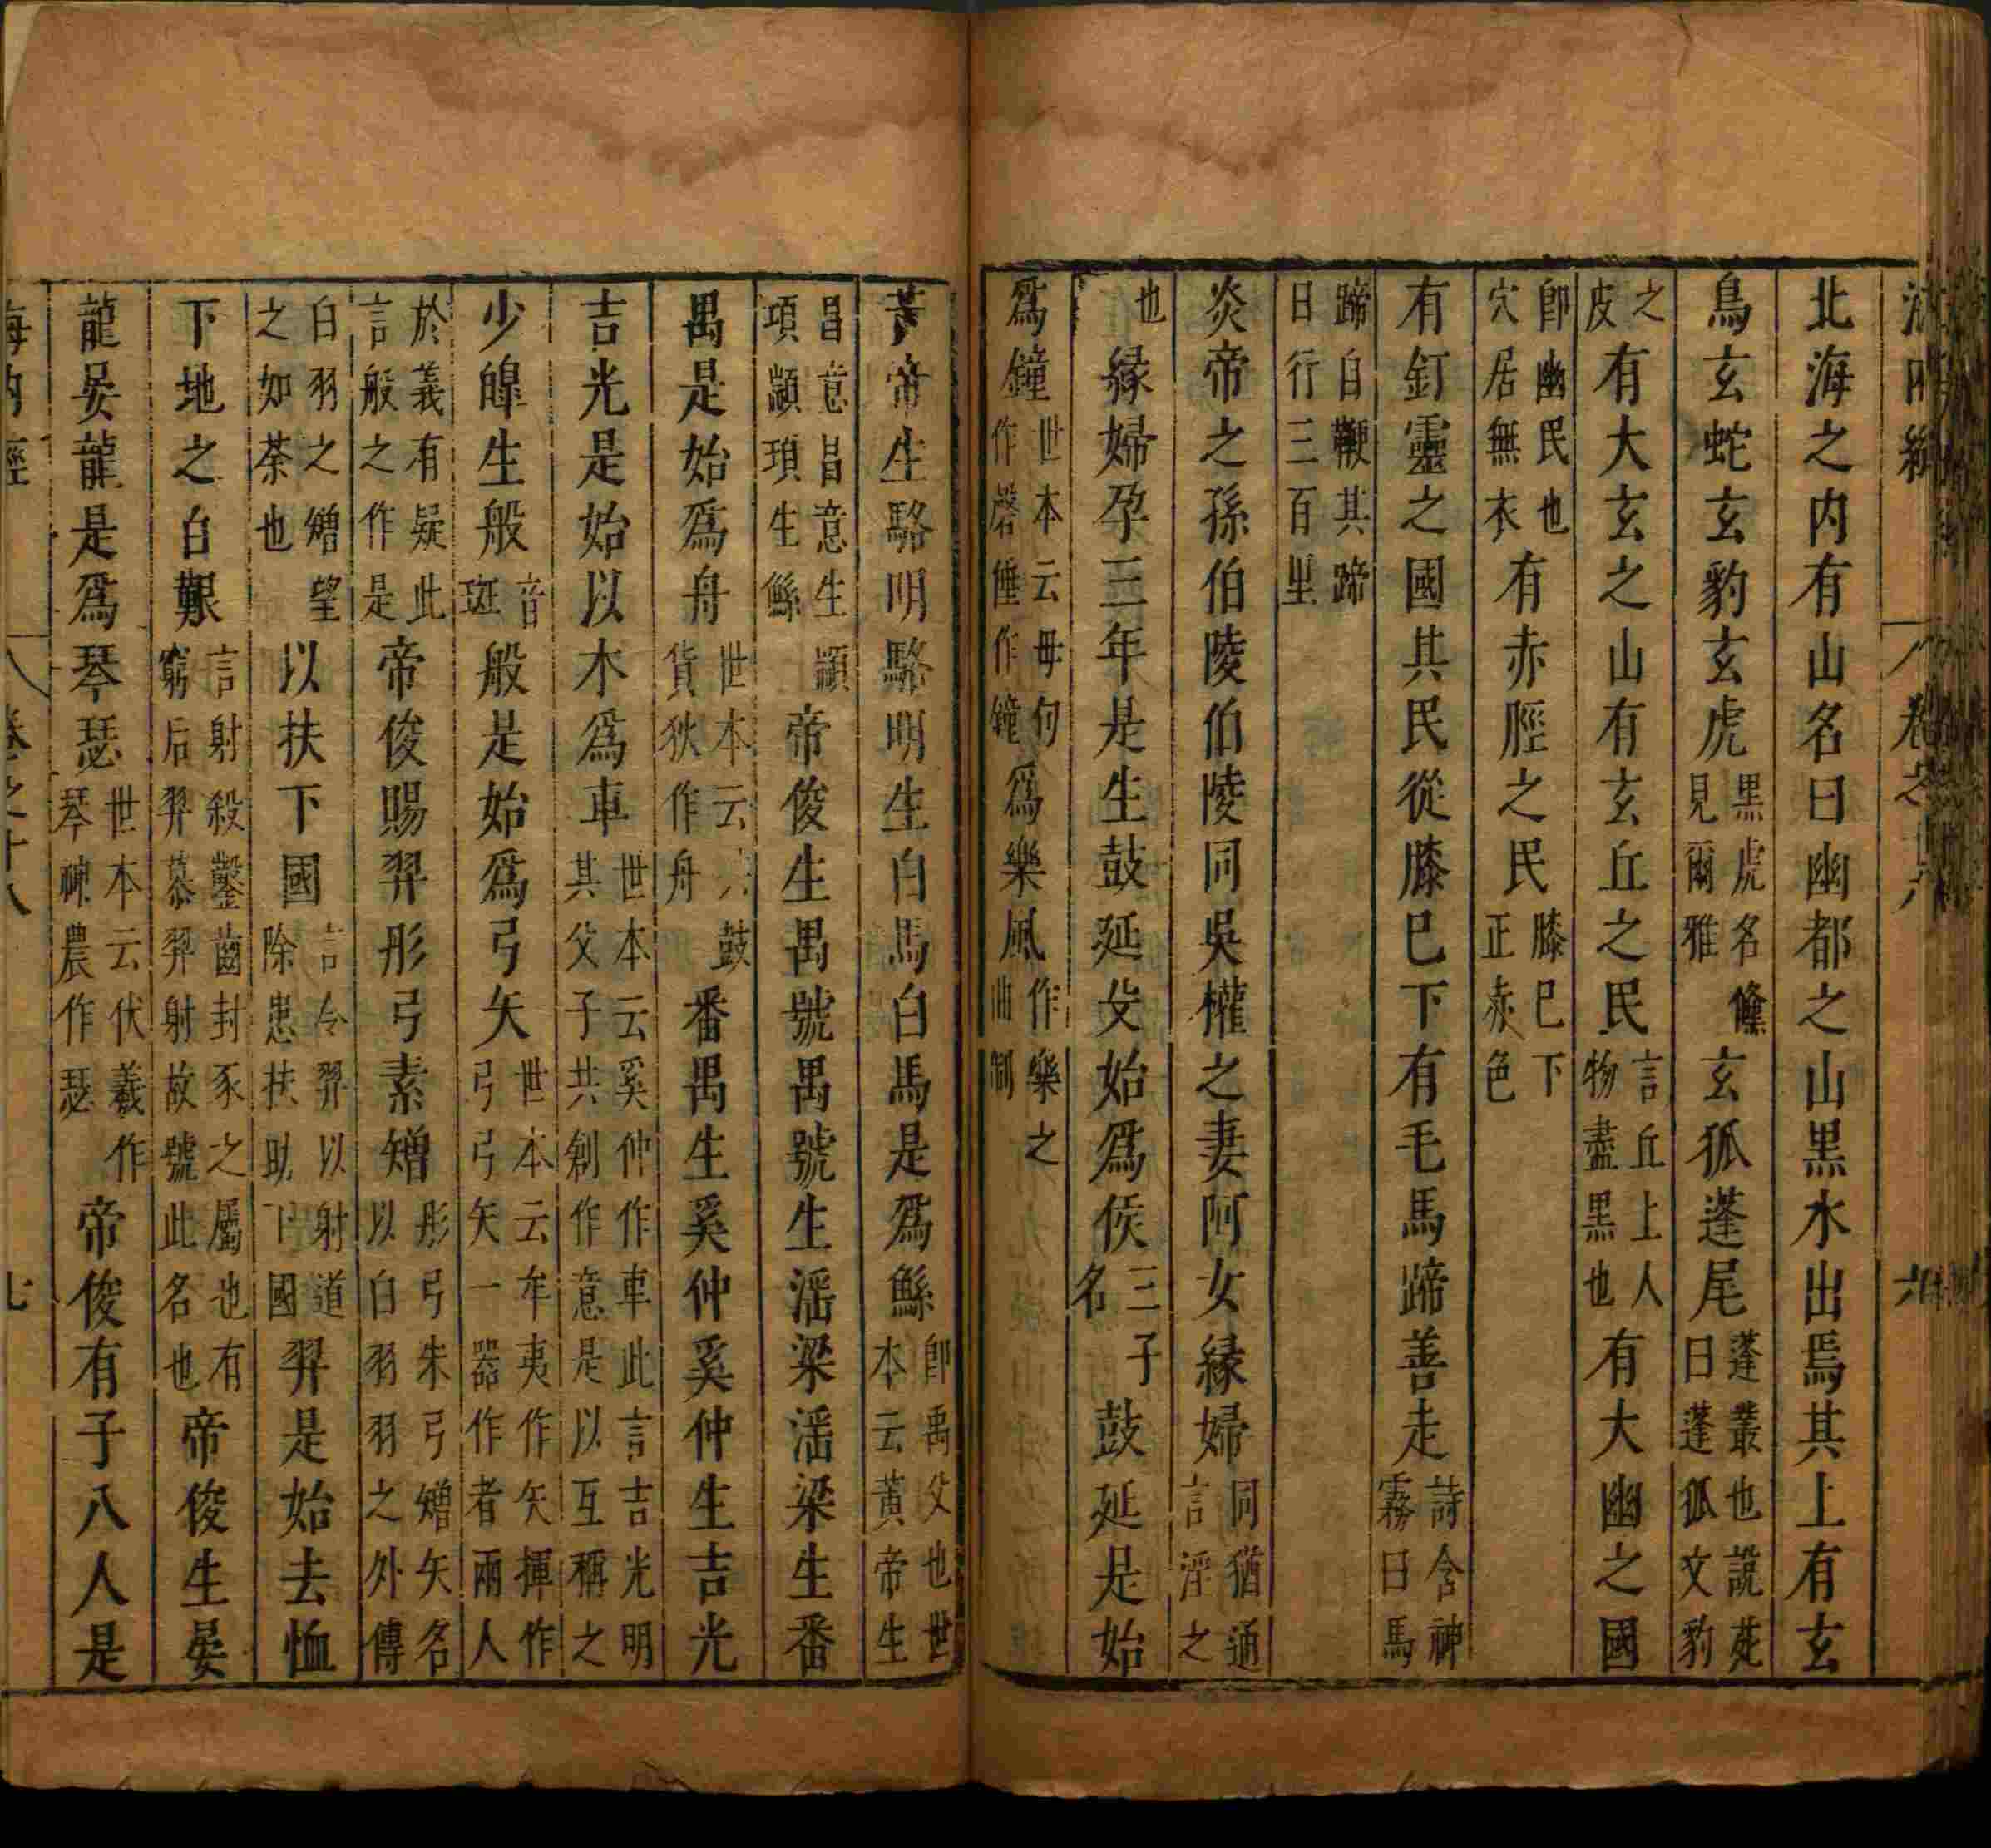 海內經 卷之十八 六
北海之内有山名曰幽都之山黒水出焉其上有玄
鳥玄蛇玄豹玄虎黒虎名虪見爾雅玄狐蓬尾蓬叢也說苑曰蓬狐文豹
之皮有大玄之山有玄丘之民言丘上人物盡黒也有大幽之國
卽幽民也穴居無衣有赤脛之民膝巳下正赤色
有釘靈之國其民從膝巳下有毛馬蹄善走詩含神霧曰馬
蹄自鞭其蹄日行三百里
炎帝之孫伯陵伯陵同吳權之妻阿女緣婦同猶通言淫之
也緣婦孕三年是生鼓延殳始爲侯三子名鼓延是始
爲鐘世本云毋句作磬倕作鐘爲樂風作樂之曲制
黃帝生駱明駱明生白馬白馬是爲鯀卽禹父也世本云黃帝生
昌意昌意生顓項顓頊生鯀帝俊生禺號禺號生滛梁滛梁生番
禺是始爲舟世本云共鼓貨狄作舟番禺生奚仲奚仲生吉光
吉光是始以木爲車世本云奚仲作車此言吉光明其父子共創作意是以互稱之
少皥生般音班般是始爲弓矢世本云牟夷作矢揮作弓弓矢一器作者兩人
於義有疑此言般之作是帝俊賜羿彤弓素矰彤弓朱弓矰矢名以白羽羽之外傳
白羽之矰望之如荼也以扶下國言令羿以射道除患扶助下國羿是始去恤
下地之百艱言射殺鑿齒封豕之屬也有窮后羿慕羿射故號此名也帝俊生晏
龍晏龍是爲琴瑟世本云伏羲作琴神農作瑟帝俊有子八人是
海內經 卷之十八 七